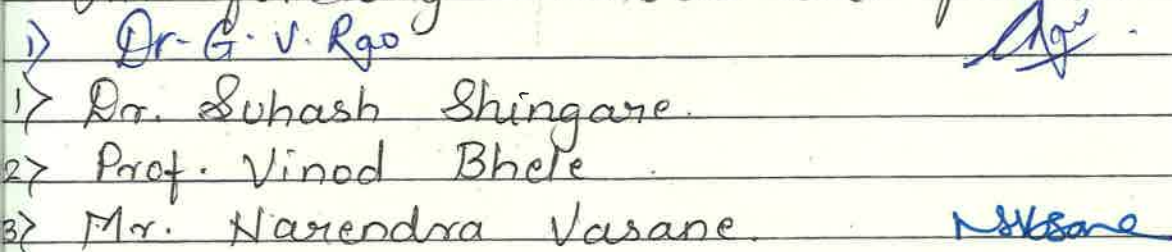 1) Dr. G. V. Rao
1) Dr. Suhash Shingare.
2) Prof. Vinod Bhele.
3) Mr. Narendra Vasane. NSVasane